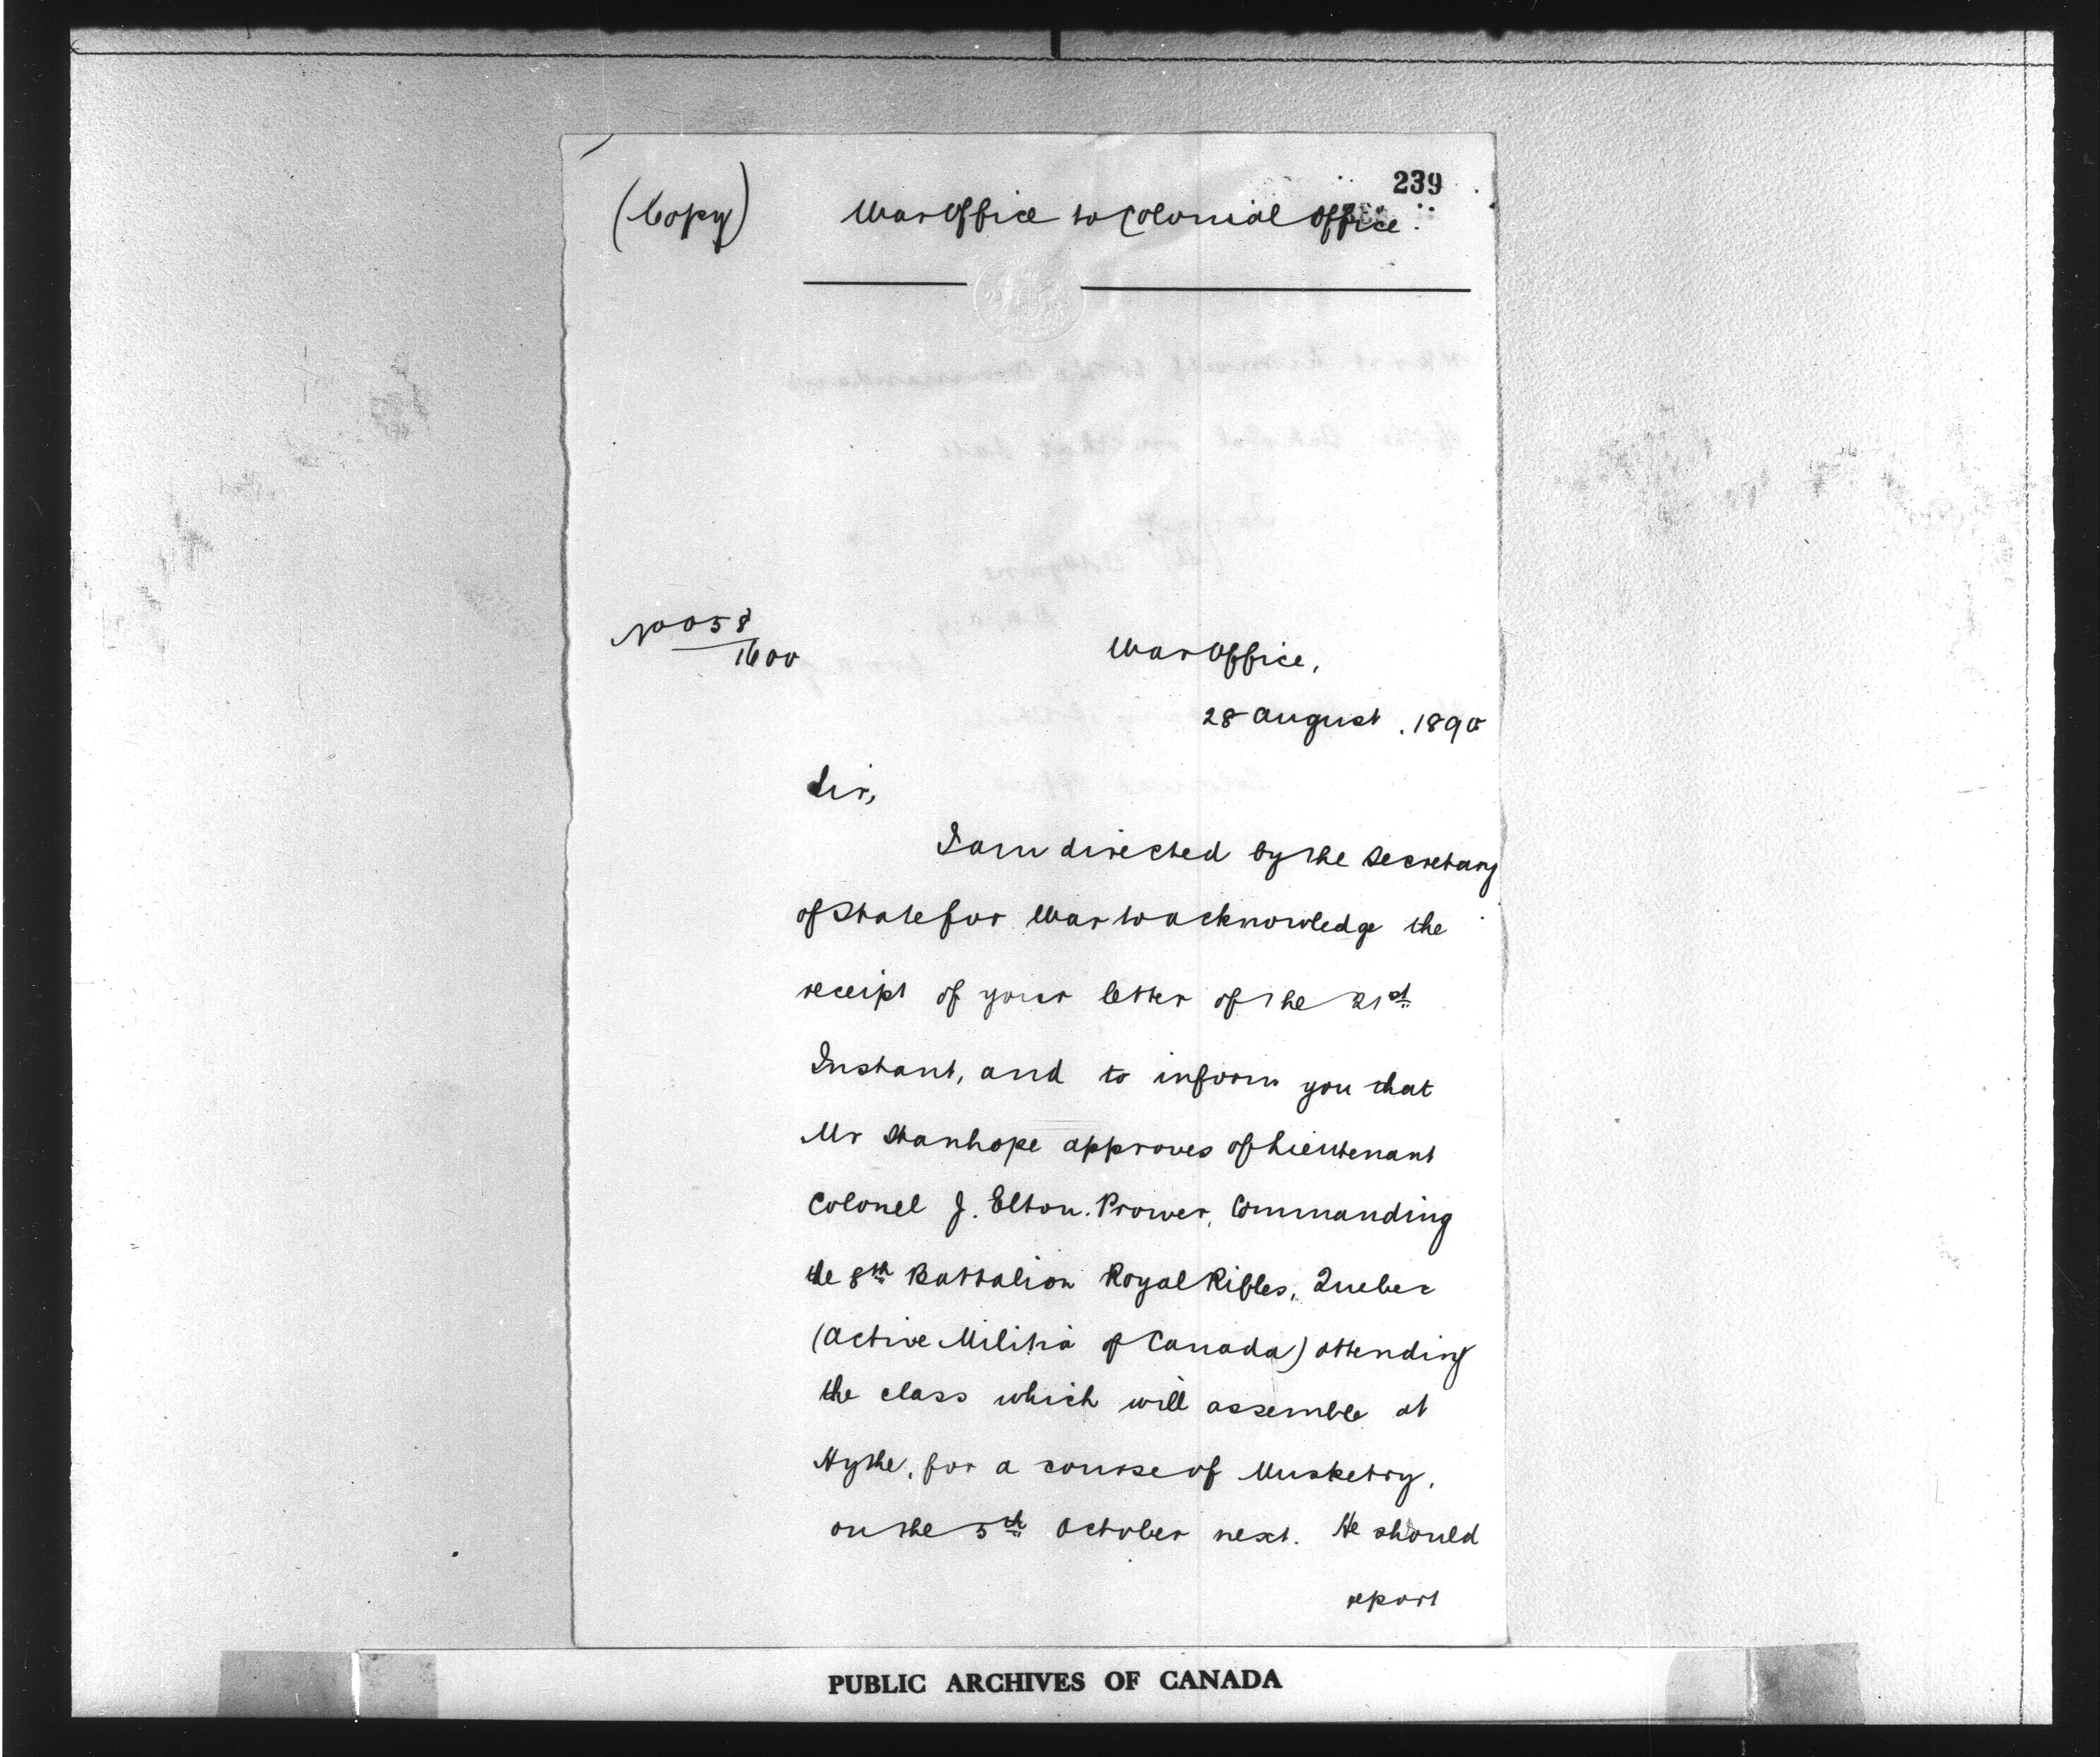 239
(Copy) War Office to Colonial Office.
No 058
1600
War Office,
28 August . 1890
Sir,
I am directed by the Secretary
of State for War to acknowledge the
receipt of your letter of the 21st
Instant, and to inform you that
Mr Stanhope approves of Lieutenant
Colonel J. Elton. Prower, Commanding
the 8th Battalion Royal Rifles, Quebec
(Active Militia of Canada) attending
the class which will assemble at
Hythe, for a course of Musketry,
on the 5th October next. He should
report
PUBLIC ARCHIVES OF CANADA